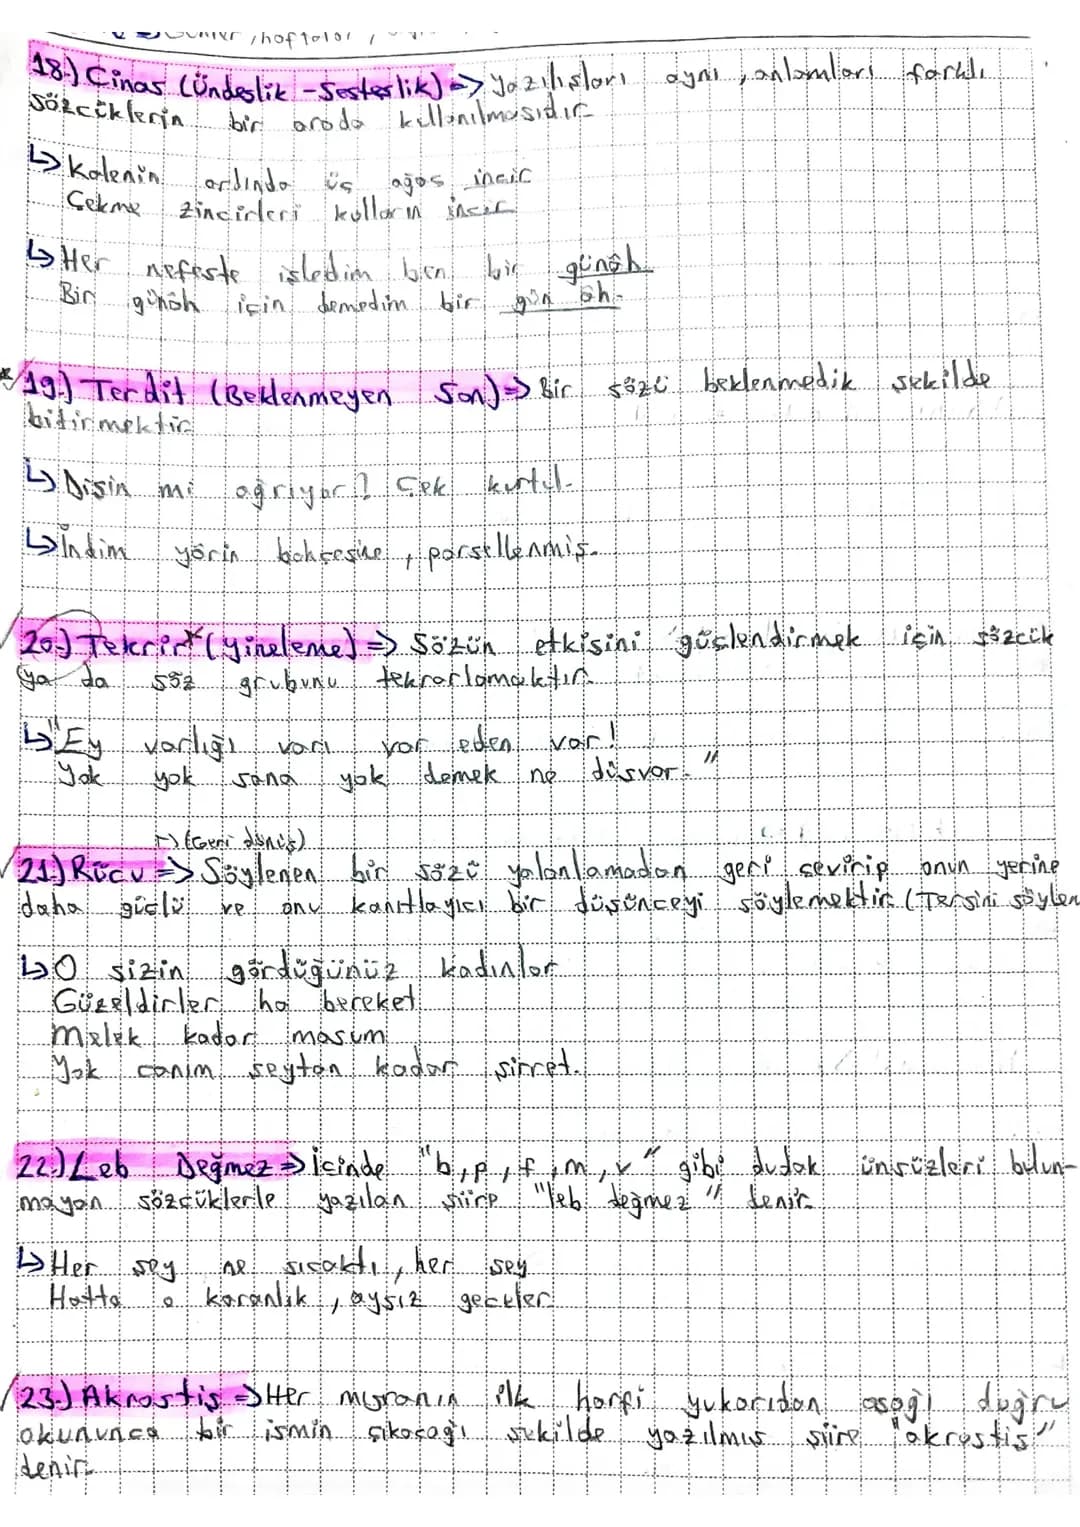 18.) Cinas (Ündeşlik - Sesteşlik) => Yazılışları aynı, anlamları farklı
sözcüklerin bir arada kullanılmasıdır.
↳ Kalenin ardında üç ağaç incir
Çekme zincirleri kolların incir
↳ Her nefeste işledim ben bir günâh
Bir günâh için demedim bir gün âh.
19.) Terdit (Beklenmeyen Son) => Bir sözü beklenmedik şekilde
bitirmektir.
↳ Dişin mi ağrıyor? Çek kurtul.
↳ İndim yârin bahçesine, parsellenmiş.
20.) Tekrir* (Yineleme) => Sözün etkisini güçlendirmek için sözcük
ya da söz grubunu tekrarlamaktır.
↳ "Ey varlığı varı var eden var!
Yok yok sana yok demek ne düşvar."
↳ (Geri dönüş)
21.) Rücu => Söylenen bir sözü yalanlamadan geri çevirip onun yerine
daha güçlü ve onu kanıtlayıcı bir düşünceyi söylemektir. (Tersini söylen
↳ O sizin gördüğünüz kadınlar
Güzeldirler ha bereket
Melek kadar masum
Yok canım şeytan kadar şirret.
22.) Leb Değmez => İçinde "b, p, f, m, v" gibi dudak ünsüzleri bulun-
mayan sözcüklerle yazılan şiire "leb değmez" denir.
↳ Her şey ne sıcaktı, her şey
Hatta o karanlık, aysız geceler
23.) Akrostiş => Her mısranın ilk harfi yukarıdan aşağı doğru
okununca bir ismin çıkacağı şekilde yazılmış şiire "akrostiş"
denir.